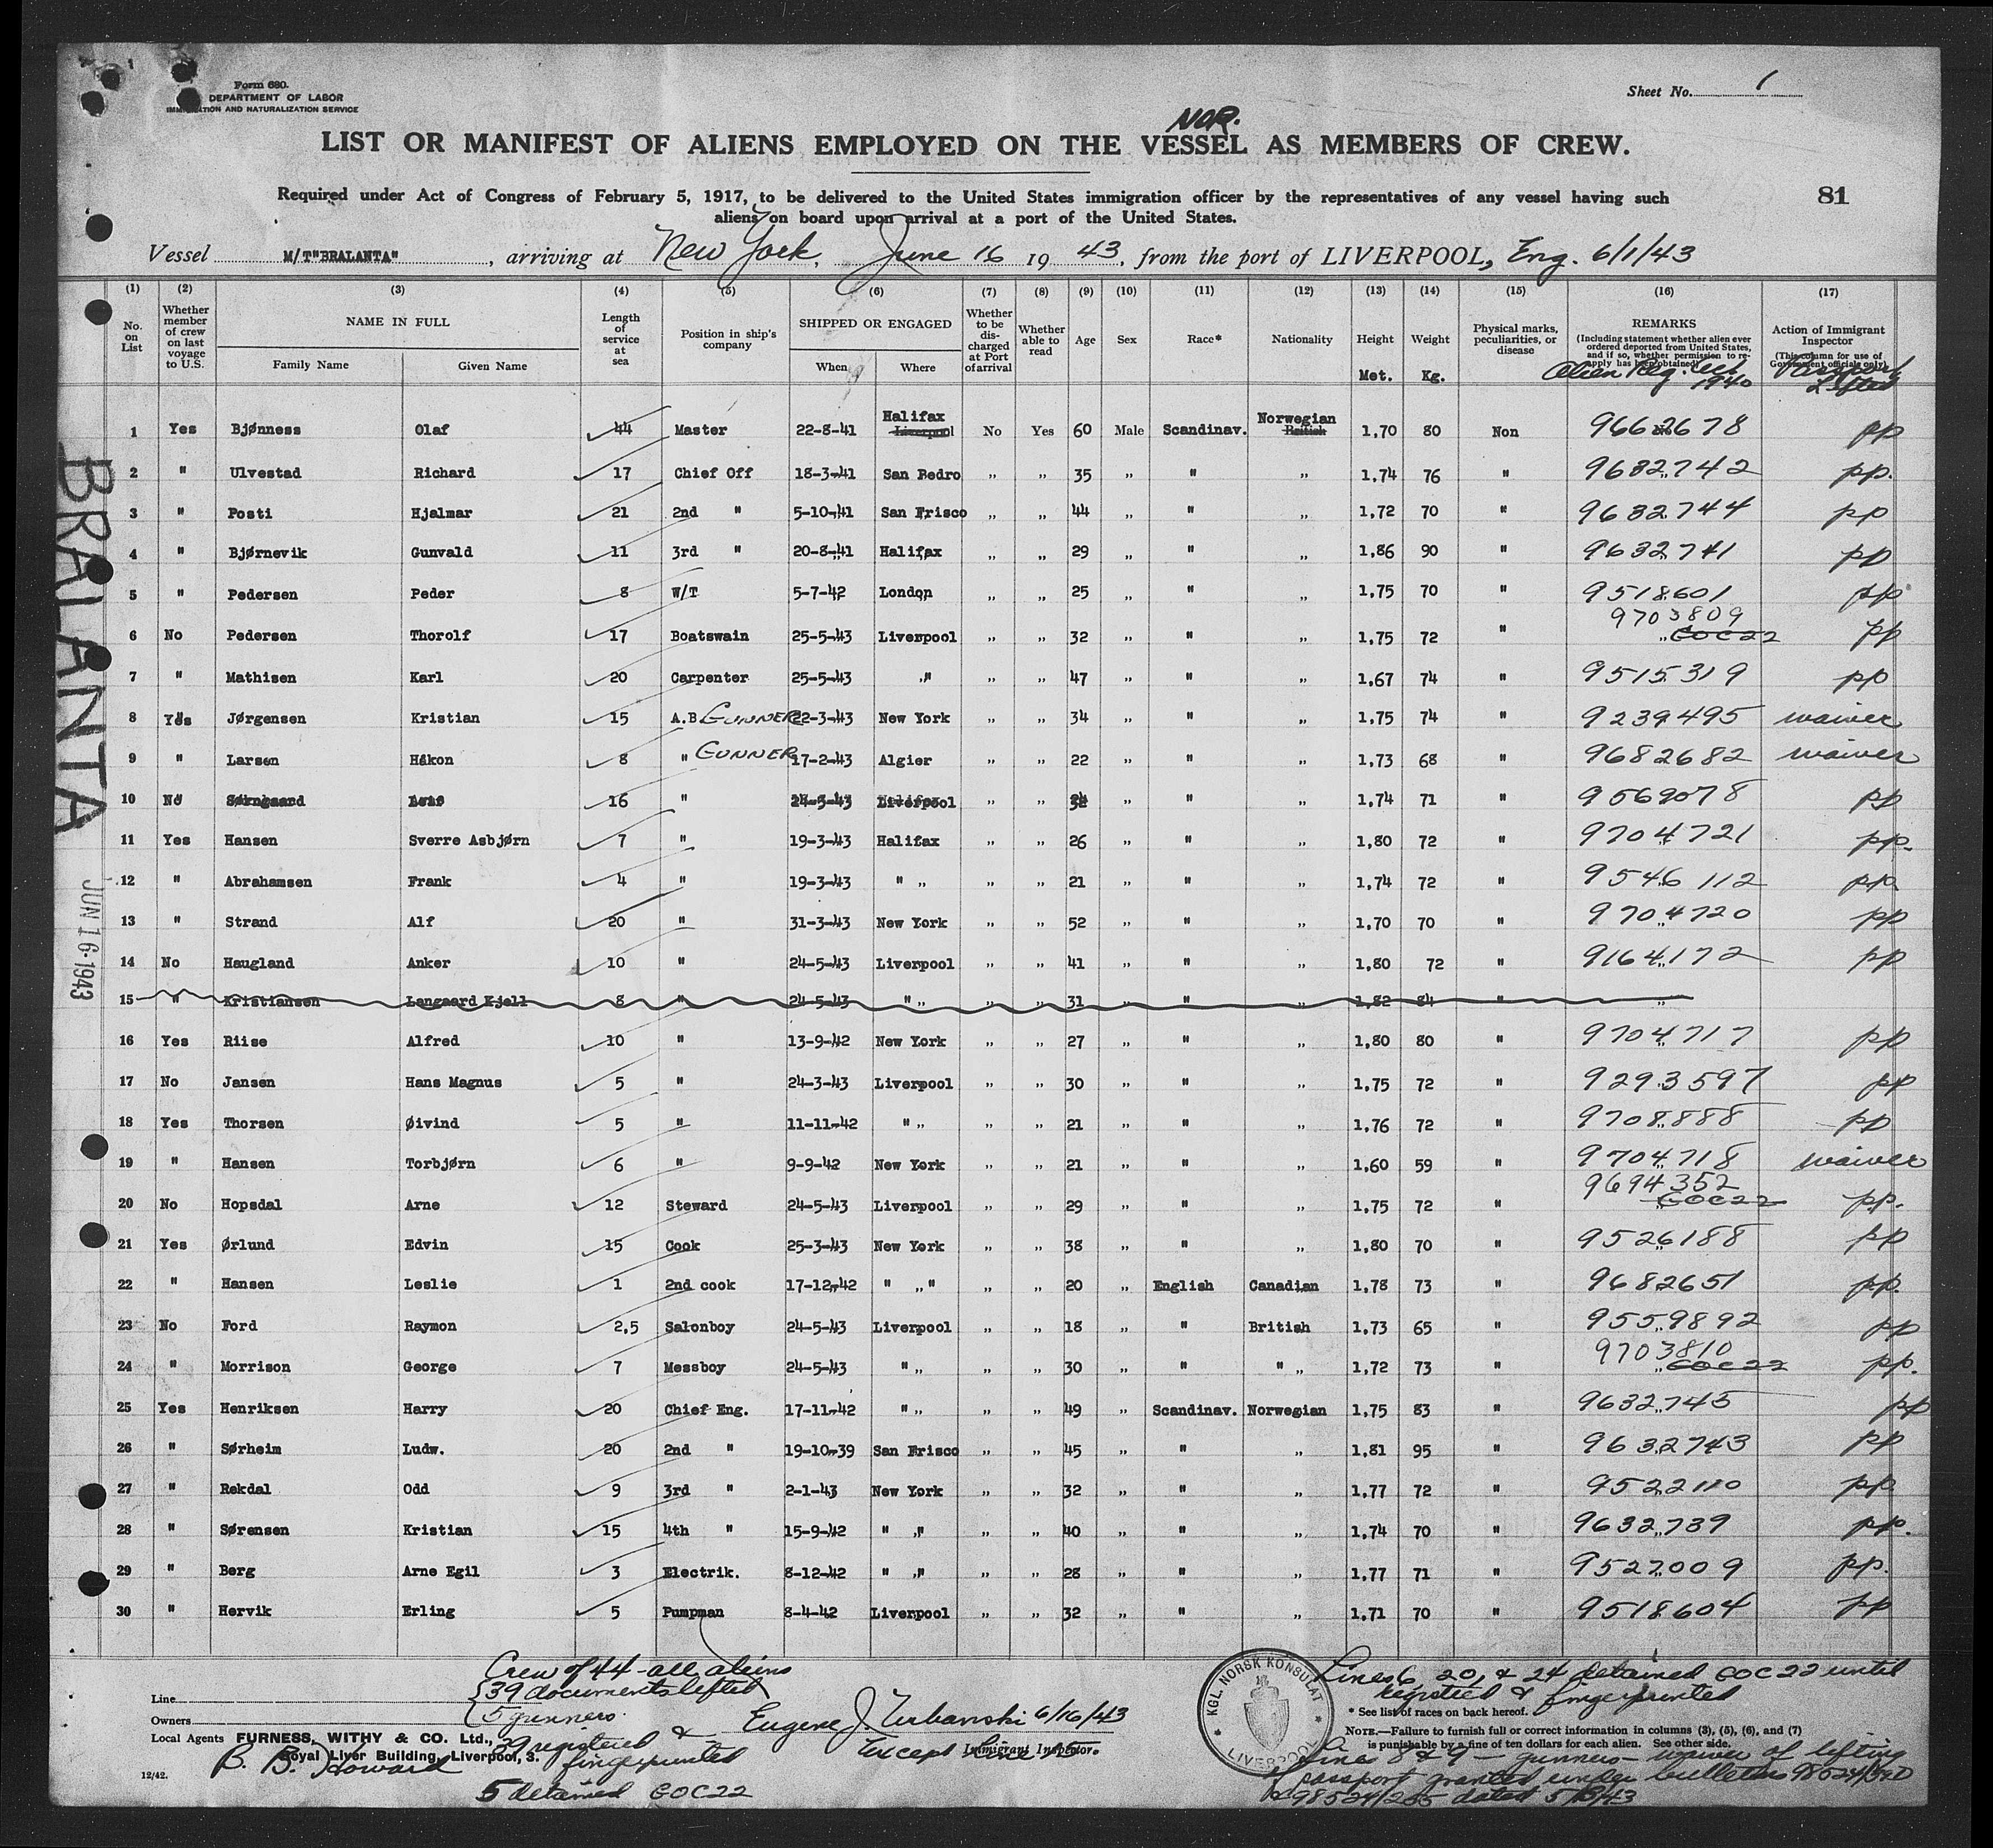 Form 680.
DEPARTMENT OF LABOR
IMMIGRATION AND NATURALIZATION SERVICE
Sheet No. 1
NOR.
LIST OR MANIFEST OF ALIENS EMPLOYED ON THE VESSEL AS MEMBERS OF CREW.
Required under Act of Congress of February 5, 1917, to be delivered to the United States immigration officer by the representatives of any vessel having such
aliens on board upon arrival at a port of the United States.
81
Vessel M/T"BRALANTA", arriving at New York, June 16 1943, from the port of LIVERPOOL, Eng. 6/1/43
(1) (2) (3) (4) (5) (6) (7) (8) (9) (10) (11) (12) (13) (14) (15) (16) (17)
No. on List
Whether member of crew on last voyage to U.S.
NAME IN FULL
Family Name
Given Name
Length of service at sea
Position in ship's company
SHIPPED OR ENGAGED
When
Where
Whether to be discharged at Port of arrival
Whether able to read
Age
Sex
Race*
Nationality
Height
Met.
Weight
Kg.
Physical marks, peculiarities, or disease
REMARKS
(Including statement whether alien ever ordered deported from United States, and if so, whether permission to re-apply has been obtained)
Alien Reg. Act 1940
Action of Immigrant Inspector
(This column for use of Government officials only)
Passport Lifted
1 Yes Bjønness Olaf 44 Master 22-8-41 Halifax Liverpool No Yes 60 Male Scandinav. Norwegian British 1,70 80 Non 9662678 pp
2 " Ulvestad Richard 17 Chief Off 18-3-41 San Pedro " " 35 " " " 1,74 76 " 9632742 pp.
3 " Posti Hjalmar 21 2nd " 5-10-41 San Frisco " " 44 " " " 1,72 70 " 9632744 pp
4 " Bjørnevik Gunvald 11 3rd " 20-8-41 Halifax " " 29 " " " 1,86 90 " 9632741 pp
5 " Pedersen Peder 8 W/T 5-7-42 London " " 25 " " " 1,75 70 " 9518601 pp
6 No Pedersen Thorolf 17 Boatswain 25-5-43 Liverpool " " 32 " " " 1,75 72 " 9703809 GOC22 pp
7 " Mathisen Karl 20 Carpenter 25-5-43 " " " 47 " " " 1,67 74 " 9515319 pp
8 Yes Jørgensen Kristian 15 A.B. GUNNER 22-3-43 New York " " 34 " " " 1,75 74 " 9239495 waiver
9 " Larsen Håkon 8 " GUNNER 17-2-43 Algier " " 22 " " " 1,73 68 " 9682682 waiver
10 No 16 " 24-5-43 Liverpool " " " " " 1,74 71 " 9569078 pp
11 Yes Hansen Sverre Asbjørn 7 " 19-3-43 Halifax " " 26 " " " 1,80 72 " 9704721 pp.
12 " Abrahamsen Frank 4 " 19-3-43 " " " 21 " " " 1,74 72 " 9546112 pp.
13 " Strand Alf 20 " 31-3-43 New York " " 52 " " " 1,70 70 " 9704720 pp
14 No Haugland Anker 10 " 24-5-43 Liverpool " " 41 " " " 1,80 72 " 9164172 pp
15 " Kristiansen Langaard Kjell 8 " 24-5-43 " " " 31 " " " 1,82 84 " "
16 Yes Riise Alfred 10 " 13-9-42 New York " " 27 " " " 1,80 80 " 9704717 pp
17 No Jansen Hans Magnus 5 " 24-3-43 Liverpool " " 30 " " " 1,75 72 " 9293597 pp
18 Yes Thorsen Øivind 5 " 11-11-42 " " " 21 " " " 1,76 72 " 9708888 pp
19 " Hansen Torbjørn 6 " 9-9-42 New York " " 21 " " " 1,60 59 " 9704718 waiver
20 No Hopsdal Arne 12 Steward 24-5-43 Liverpool " " 29 " " " 1,75 72 " 9694352 GOC22 pp.
21 Yes Ørlund Edvin 15 Cook 25-3-43 New York " " 38 " " " 1,80 70 " 9526188 pp
22 " Hansen Leslie 1 2nd cook 17-12-42 " " " " 20 " English Canadian 1,78 73 " 9682651 pp.
23 No Ford Raymon 2,5 Salonboy 24-5-43 Liverpool " " 18 " " British 1,73 65 " 9559892 pp
24 " Morrison George 7 Messboy 24-5-43 " " " 30 " " " 1,72 73 " 9703810 GOC22 pp.
25 Yes Henriksen Harry 20 Chief Eng. 17-11-42 " " " 49 " Scandinav. Norwegian 1,75 83 " 9632745 pp
26 " Sørheim Ludw. 20 2nd " 19-10-39 San Frisco " " 45 " " " 1,81 95 " 9632743 pp
27 " Rekdal Odd 9 3rd " 2-1-43 New York " " 32 " " " 1,77 72 " 9522110 pp
28 " Sørensen Kristian 15 4th " 15-9-42 " " " " 40 " " " 1,74 70 " 9632739 pp.
29 " Berg Arne Egil 3 Electrik. 8-12-42 " " " " 28 " " " 1,77 71 " 9527009 pp.
30 " Hervik Erling 5 Pumpman 8-4-42 Liverpool " " 32 " " " 1,71 70 " 9518604 pp
BRALANTA
JUN 16 1943
Crew of 44 - all aliens
39 documents lifted
5 gunners.
Line
Owners
Local Agents FURNESS, WITHY & CO. Ltd.,
Royal Liver Building, Liverpool, 3.
B. B. Howard
12/42.
39 registered &
fingerprinted
5 detained GOC22
Eugene J. Urbanski 6/16/43
Immigrant Inspector.
KGL. NORSK KONSULAT
LIVERPOOL
Lines 6, 20, & 24 detained GOC22 until
registered & fingerprinted
* See list of races on back hereof.
NOTE.—Failure to furnish full or correct information in columns (3), (5), (6), and (7)
is punishable by a fine of ten dollars for each alien. See other side.
Lines 8 & 9 - gunners - waiver of lifting
passport granted under bulletins 98524/390
& 98524/255 dated